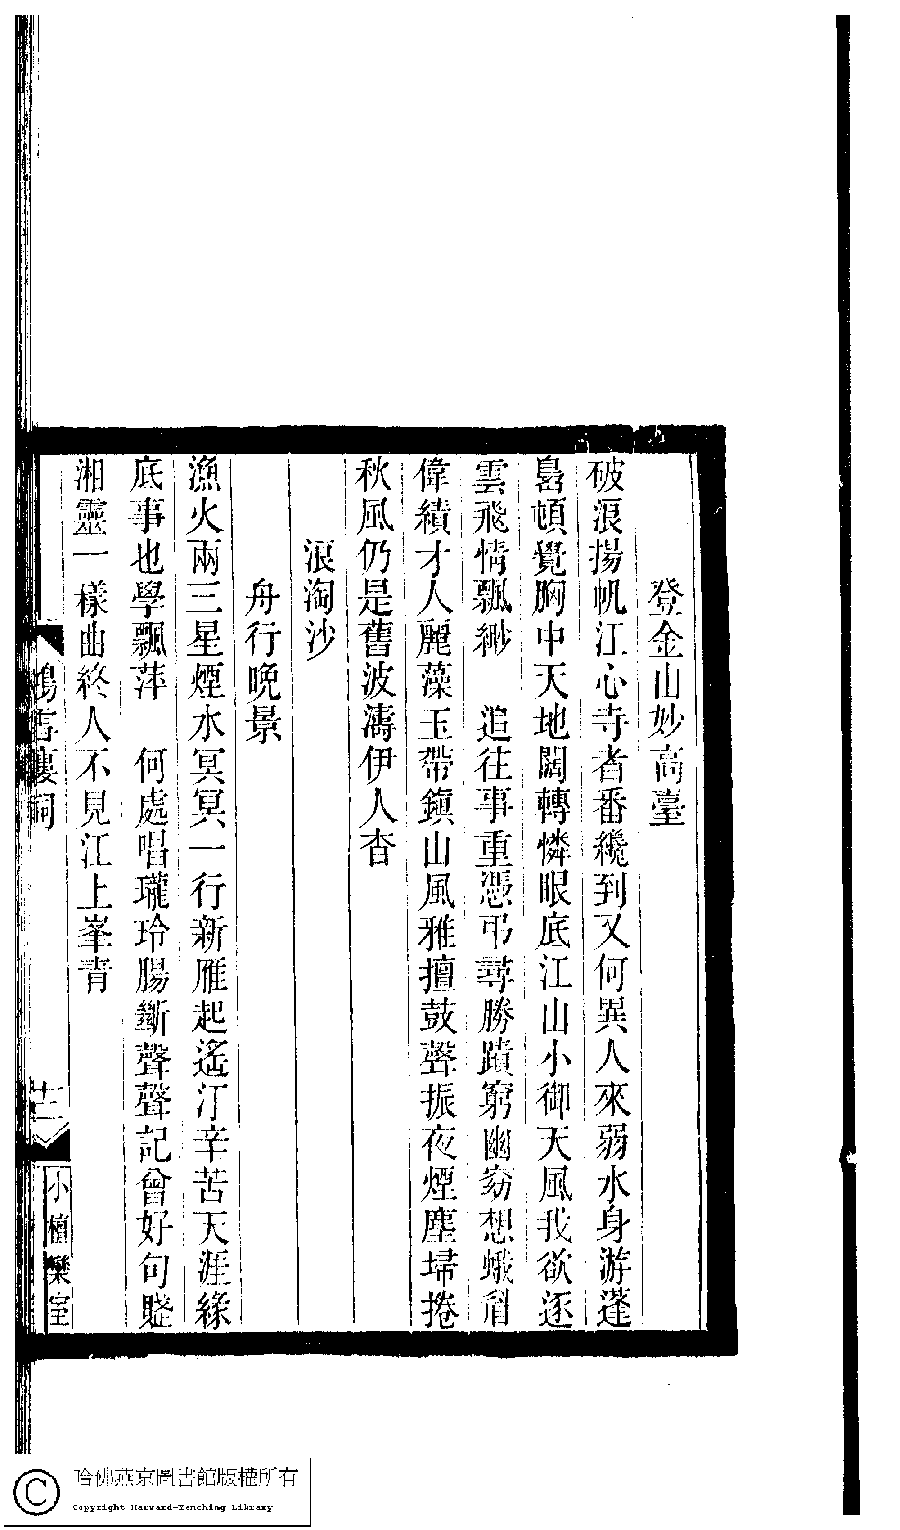 登金山妙高臺
破浪揚帆江心寺者番纔到又何異人來弱水身游蓬
島頓覺胸中天地闊轉憐眼底江山小御天風我欲逐
雲飛情飄緲　追往事重憑弔尋勝蹟窮幽窈想蛾眉
偉績才人麗藻玉帶鎮山風雅擅鼓聲振夜煙塵埽捲
秋風仍是舊波濤伊人杳
浪淘沙
舟行晚景
漁火兩三星煙水冥冥一行新雁起遙汀辛苦天涯緣
底事也學飄萍　何處唱瓏玲腸斷聲聲記曾好句賤
湘靈一樣曲終人不見江上峯青
鴻雪樓詞
十二
小檀欒室
哈佛燕京圖書館版權所有
Copyright Harvard-Yenching Library